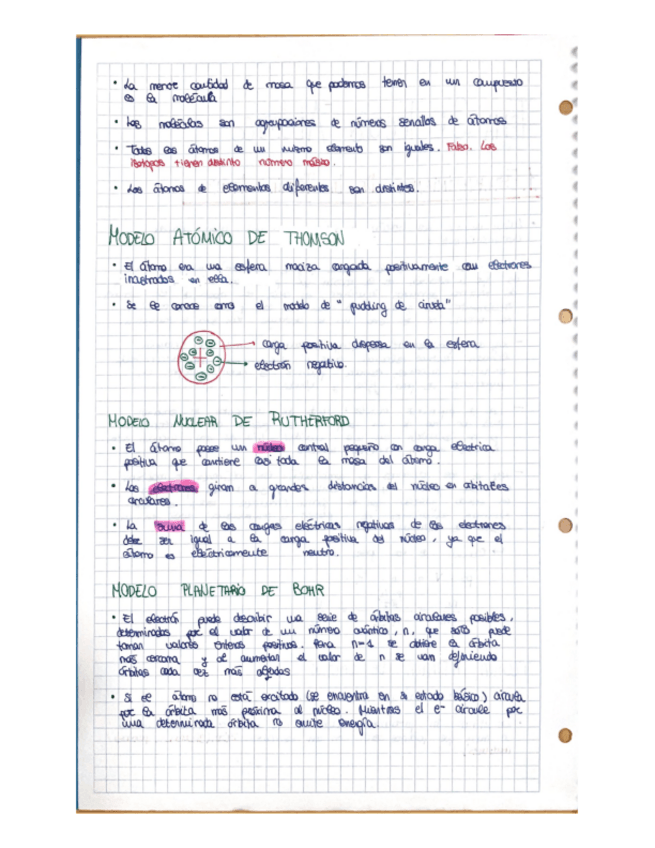 • La menor cantidad de masa que podemos tener en un compuesto
es la molécula
• Las moléculas son agrupaciones de números sencillos de átomos
• Todos los átomos de un mismo elemento son iguales. Falso. Los
isótopos tienen distinto número másico.
• Los átomos de elementos diferentes son distintos.
MODELO ATÓMICO DE THOMSON
• El átomo era una esfera maciza cargada positivamente con electrones
incrustados en ella.
• Se le conoce como el modelo de "pudding de ciruela"
carga positiva dispersa en la esfera
electrón negativo.
MODELO NUCLEAR DE RUTHERFORD
• El átomo posee un núcleo central pequeño con carga eléctrica
positiva que contiene casi toda la masa del átomo.
• Los electrones giran a grandes distancias del núcleo en orbitales
circulares.
• La suma de las cargas eléctricas negativas de los electrones
debe ser igual a la carga positiva del núcleo, ya que el
átomo es eléctricamente neutro.
MODELO PLANETARIO DE BOHR
• El electrón puede describir una serie de órbitas circulares posibles,
determinadas por el valor de un número cuántico, n, que solo puede
tomar valores enteros positivos. Para n=1 se obtiene la órbita
más cercana y al aumentar el valor de n se van definiendo
órbitas cada vez más alejadas
• Si el átomo no está excitado (se encuentra en su estado básico) circula
por la órbita más próxima al núcleo. Mientras el e- circule por
una determinada órbita no emite energía.